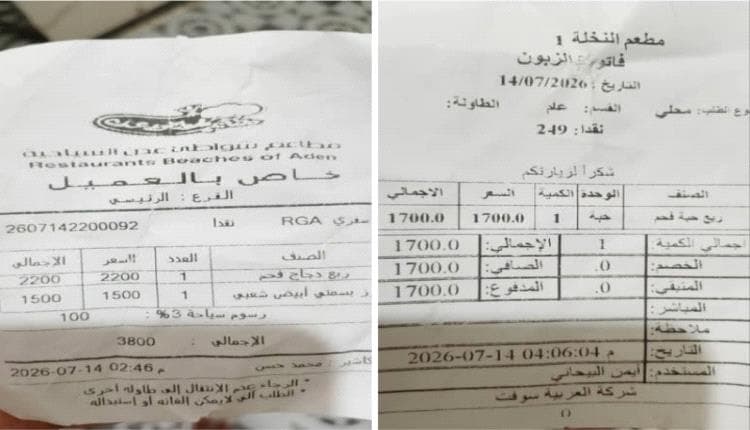 مطاعم شواطئ عدن السياحية
Restaurants Beaches of Aden
خاص بالعميل
الفرع : الرئيسي
سفري RGA نقدا 2607142200092
الصنف العدد السعر الاجمالي
ربع دجاج فحم 1 2200 2200
ر بسمتي أبيض شعبي 1 1500 1500
رسوم سياحة 3% : 100
الإجمالي : 3800
كاشير : محمد حسن 2026-07-14 02:46 م
* الرجاء عدم الانتقال إلى طاولة أخرى
* الطلب الي لايمكن الغائه أو استبداله
مطعم النخلة 1
فاتورة الزبون
التاريخ : 14/07/2026
نوع الطلب: محلي القسم: عام الطاولة:
نقدا: 249
شكرا لزيارتكم
الصنف الوحدة الكمية السعر الاجمالي
ربع حبة فحم حبة 1 1700.0 1700.0
اجمالي الكمية 1 الإجمالي: 1700.0
الخصم: .0 الصافي: 1700.0
المتبقي: .0 المدفوع: 1700.0
المباشر:
ملاحظة:
التاريخ: 2026-07-14 04:06:04 م
المستخدم: أيمن البيحاني
شركة العربية سوفت
0